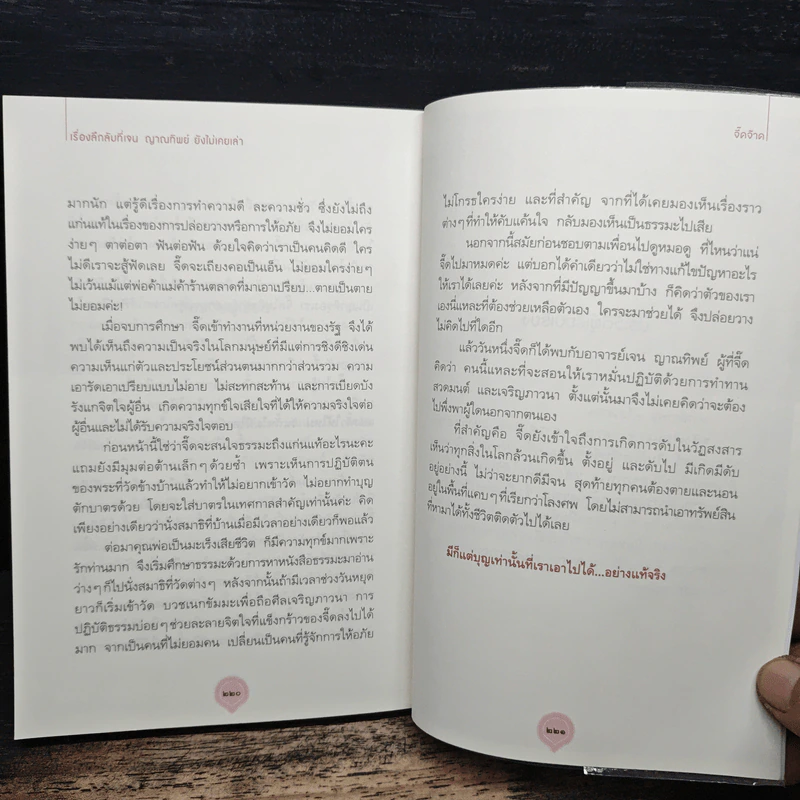 เรื่องลึกลับที่เจน ญาณทิพย์ ยังไม่เคยเล่า
มากนัก แต่รู้ดีเรื่องการทำความดี ละความชั่ว ซึ่งยังไม่ถึง
แก่นแท้ในเรื่องของการปล่อยวางหรือการให้อภัย จึงไม่ยอมใคร
ง่ายๆ ตาต่อตา ฟันต่อฟัน ด้วยใจคิดว่าเราเป็นคนคิดดี ใคร
ไม่ดีเราจะสู้ฟัดเลย จี๊ดจะเถียงคอเป็นเอ็น ไม่ยอมใครง่ายๆ
ไม่เว้นแม้แต่พ่อค้าแม่ค้าร้านตลาดที่มาเอาเปรียบ...ตายเป็นตาย
ไม่ยอมค่ะ!
เมื่อจบการศึกษา จี๊ดเข้าทำงานที่หน่วยงานของรัฐ จึงได้
พบได้เห็นถึงความเป็นจริงในโลกมนุษย์ที่มีแต่การชิงดีชิงเด่น
ความเห็นแก่ตัวและประโยชน์ส่วนตนมากกว่าส่วนรวม ความ
เอารัดเอาเปรียบแบบไม่อาย ไม่สะทกสะท้าน และการเบียดบัง
รังแกจิตใจผู้อื่น เกิดความทุกข์ใจเสียใจที่ได้ให้ความจริงใจต่อ
ผู้อื่นและไม่ได้รับความจริงใจตอบ
ก่อนหน้านี้ใช่ว่าจี๊ดจะสนใจธรรมะถึงแก่นแท้อะไรนะคะ
แถมยังมีมุมต่อต้านเล็กๆ ด้วยซ้ำ เพราะเห็นการปฏิบัติตน
ของพระที่วัดข้างบ้านแล้วทำให้ไม่อยากเข้าวัด ไม่อยากทำบุญ
ตักบาตรด้วย โดยจะใส่บาตรในเทศกาลสำคัญเท่านั้นค่ะ คิด
เพียงอย่างเดียวว่านั่งสมาธิที่บ้านเมื่อมีเวลาอย่างเดียวก็พอแล้ว
ต่อมาคุณพ่อเป็นมะเร็งเสียชีวิต ก็มีความทุกข์มากเพราะ
รักท่านมาก จึงเริ่มศึกษาธรรมะด้วยการหาหนังสือธรรมะมาอ่าน
ว่างๆ ก็ไปนั่งสมาธิที่วัดต่างๆ หลังจากนั้นถ้ามีเวลาช่วงวันหยุด
ยาวก็เริ่มเข้าวัด บวชเนกขัมมะเพื่อถือศีลเจริญภาวนา การ
ปฏิบัติธรรมบ่อยๆ ช่วยละลายจิตใจที่แข็งกร้าวของจี๊ดลงไปได้
มาก จากเป็นคนที่ไม่ยอมคน เปลี่ยนเป็นคนที่รู้จักการให้อภัย
๒๒๐
จี๊ดจ๊าด
ไม่โกรธใครง่าย และที่สำคัญ จากที่ได้เคยมองเห็นเรื่องราว
ต่างๆ ที่ทำให้คับแค้นใจ กลับมองเห็นเป็นธรรมะไปเสีย
นอกจากนี้สมัยก่อนชอบตามเพื่อนไปดูหมอดู ที่ไหนว่าแน่
จี๊ดไปมาหมดค่ะ แต่บอกได้คำเดียวว่าไม่ใช่ทางแก้ไขปัญหาอะไร
ให้เราได้เลยค่ะ หลังจากที่มีปัญญาขึ้นมาบ้าง ก็คิดว่าตัวของเรา
เองนี่แหละที่ต้องช่วยเหลือตัวเอง ใครจะมาช่วยได้ จึงปล่อยวาง
ไม่คิดไปที่ใดอีก
แล้ววันหนึ่งจี๊ดก็ได้พบกับอาจารย์เจน ญาณทิพย์ ผู้ที่จี๊ด
คิดว่า คนนี้แหละที่จะสอนให้เราหมั่นปฏิบัติด้วยการทำทาน
สวดมนต์ และเจริญภาวนา ตั้งแต่นั้นมาจึงไม่เคยคิดว่าจะต้อง
ไปพึ่งพาผู้ใดนอกจากตนเอง
ที่สำคัญคือ จี๊ดยังเข้าใจถึงการเกิดการดับในวัฏสงสาร
เห็นว่าทุกสิ่งในโลกล้วนเกิดขึ้น ตั้งอยู่ และดับไป มีเกิดมีดับ
อยู่อย่างนี้ ไม่ว่าจะยากดีมีจน สุดท้ายทุกคนต้องตายและนอน
อยู่ในพื้นที่แคบๆ ที่เรียกว่าโลงศพ โดยไม่สามารถนำเอาทรัพย์สิน
ที่หามาได้ทั้งชีวิตติดตัวไปได้เลย
มีก็แต่บุญเท่านั้นที่เราเอาไปได้...อย่างแท้จริง
๒๒๑